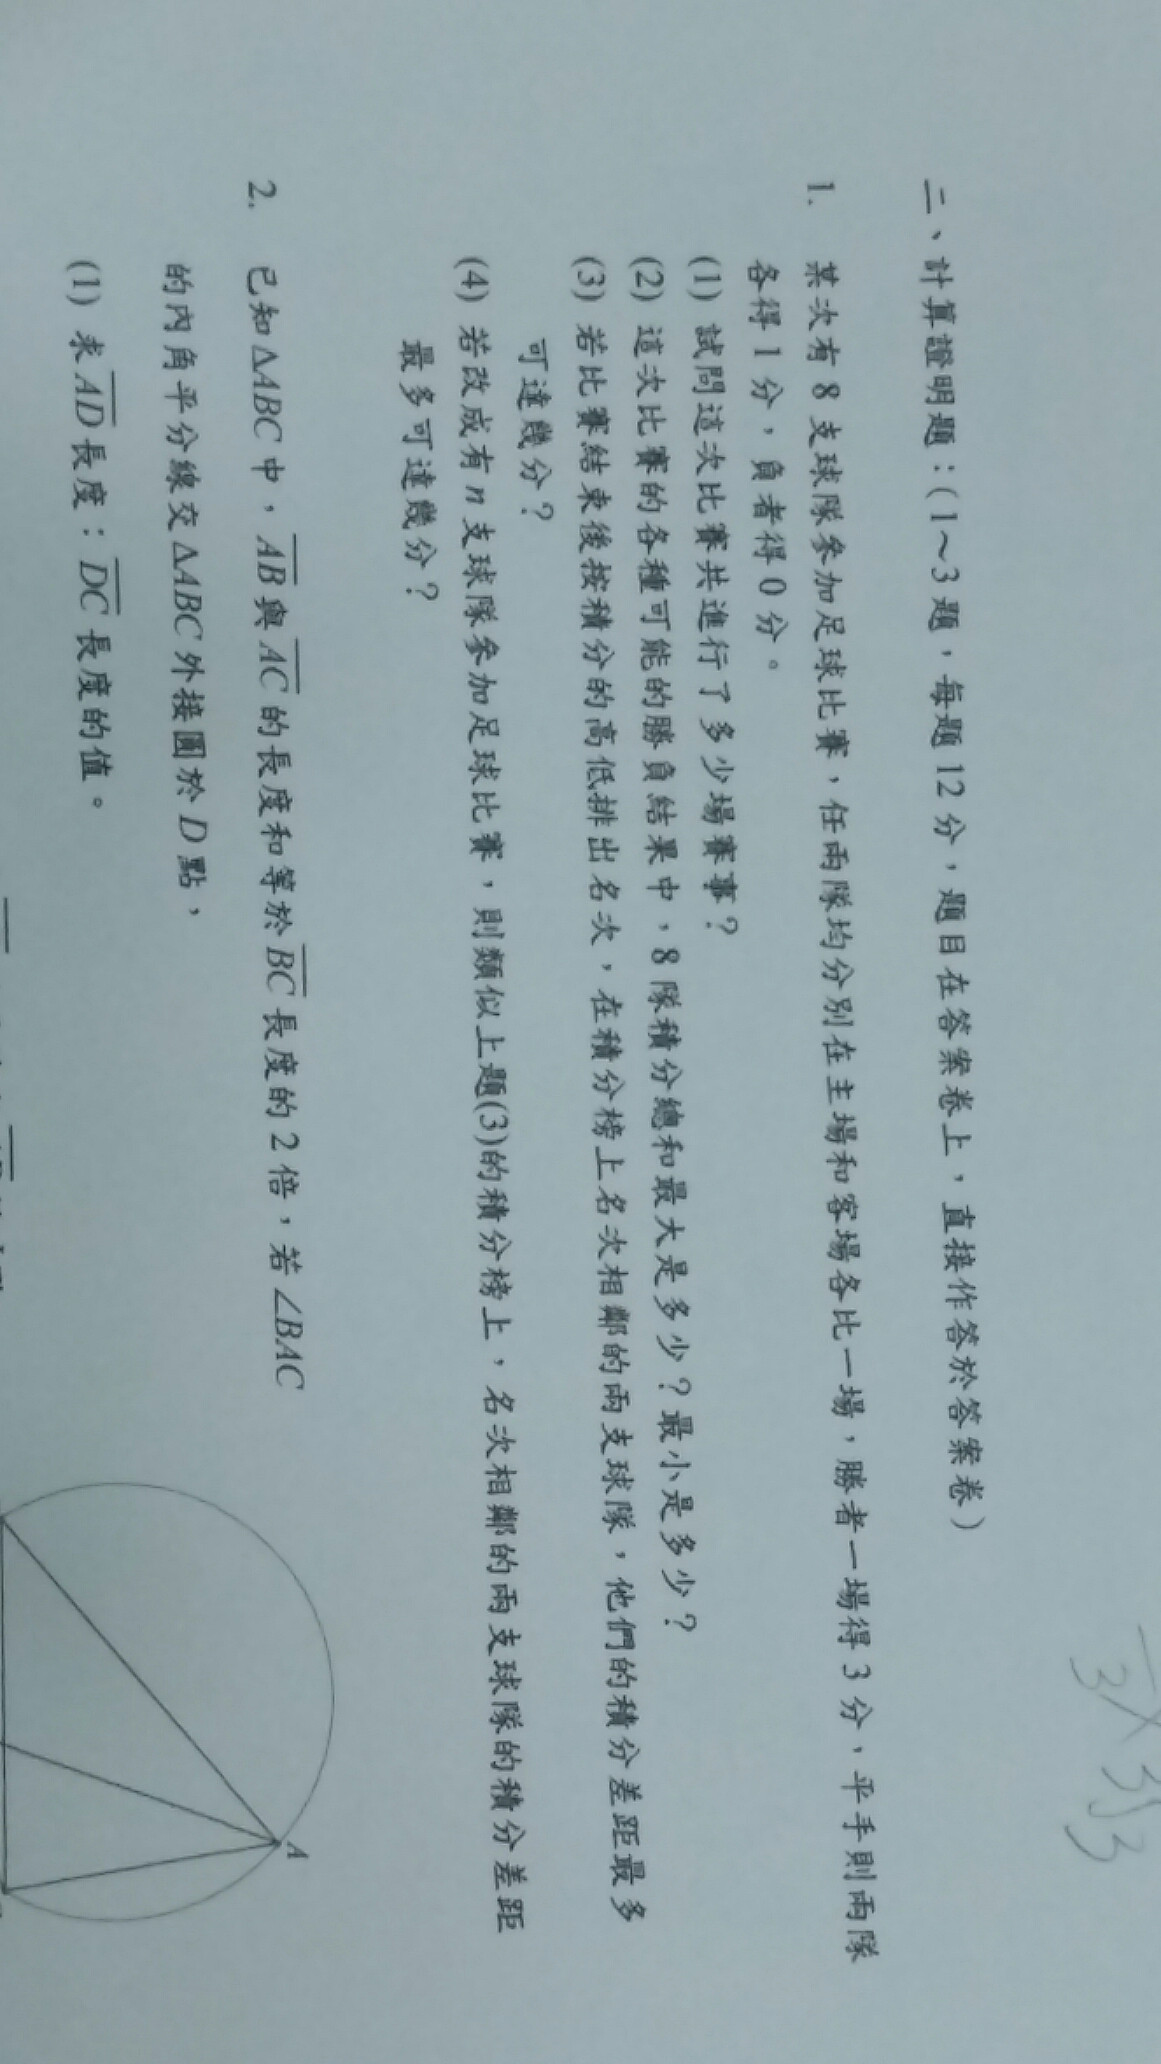 二、計算證明題：(1～3題，每題12分，題目在答案卷上，直接作答於答案卷)
1. 某次有8支球隊參加足球比賽，任兩隊均分別在主場和客場各比一場，勝者一場得3分，平手則兩隊
各得1分，負者得0分。
(1) 試問這次比賽共進行了多少場賽事？
(2) 這次比賽的各種可能的勝負結果中，8隊積分總和最大是多少？最小是多少？
(3) 若比賽結束後按積分的高低排出名次，在積分榜上名次相鄰的兩支球隊，他們的積分差距最多
可達幾分？
(4) 若改成有n支球隊參加足球比賽，則類似上題(3)的積分榜上，名次相鄰的兩支球隊的積分差距
最多可達幾分？
2. 已知△ABC中，AB與AC的長度和等於BC長度的2倍，若∠BAC
的內角平分線交△ABC外接圓於D點，
(1) 求AD長度：DC長度的值。
A